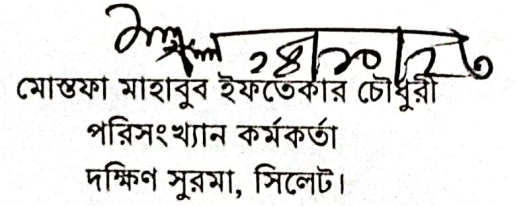 ২৪/১০/২৩
মোস্তফা মাহাবুব ইফতেকার চৌধুরী
পরিসংখ্যান কর্মকর্তা
দক্ষিণ সুরমা, সিলেট।